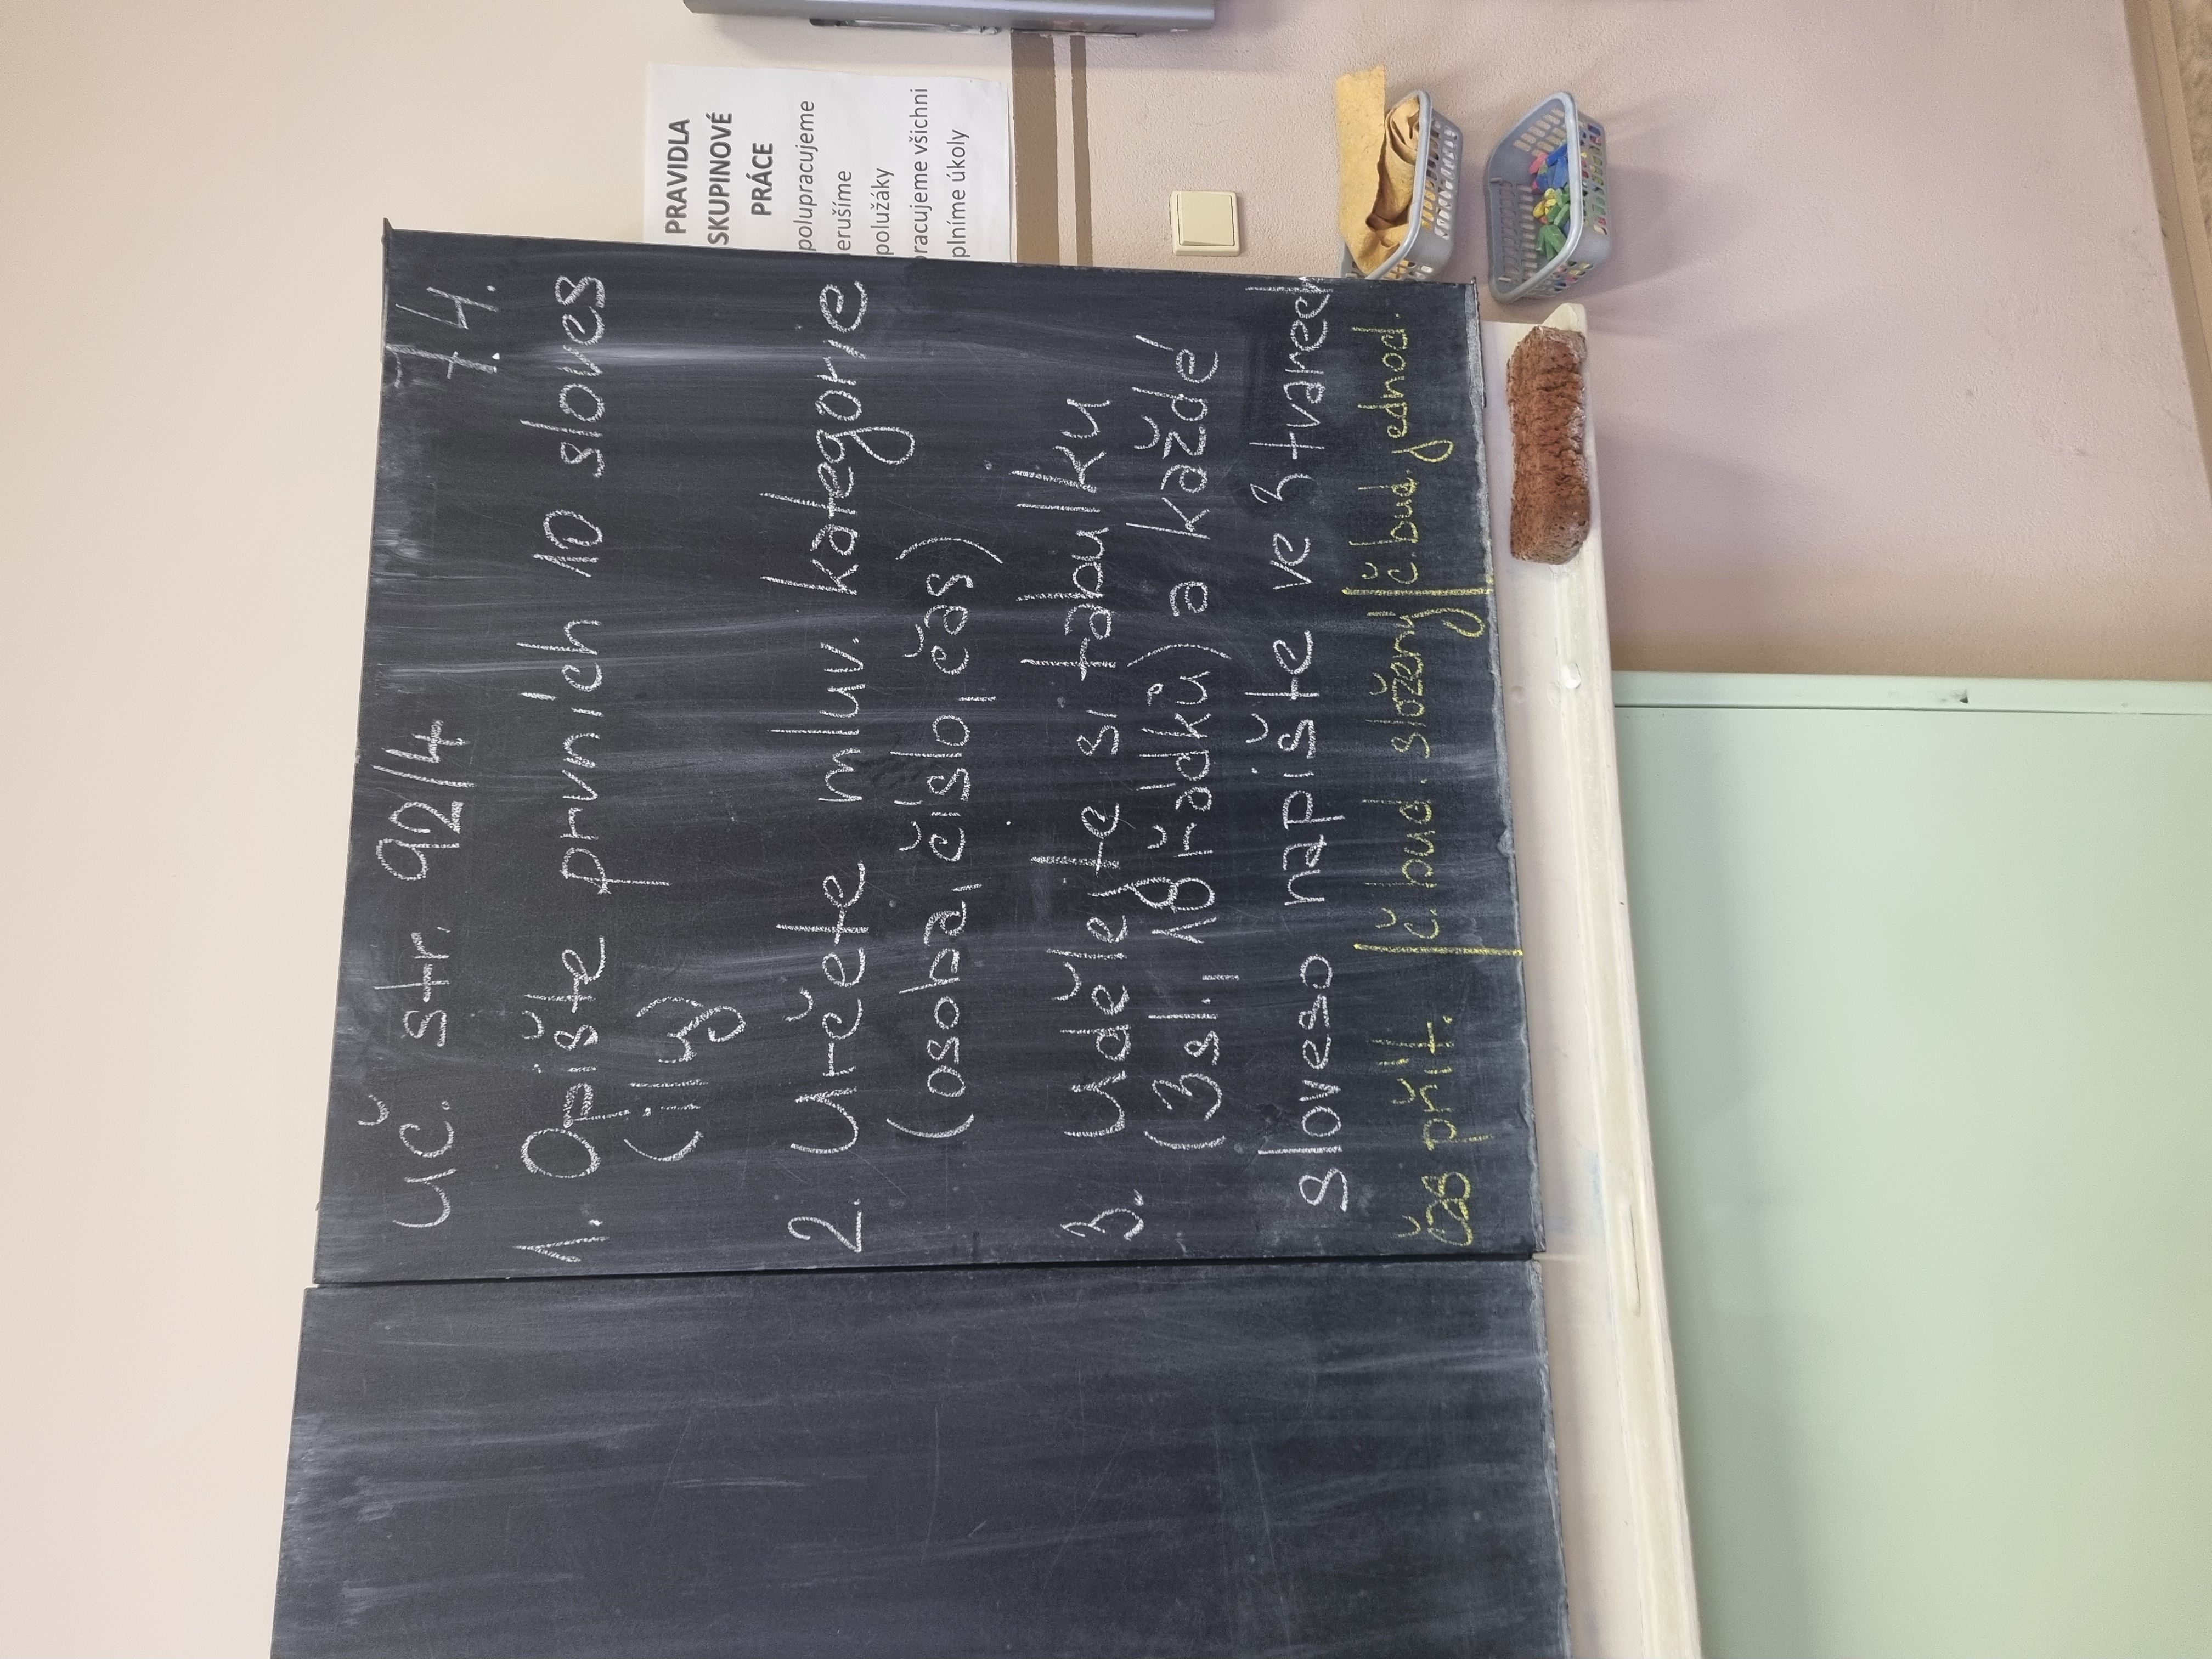 uč. str. 92/4 7.4.
1. Opište prvních 10 sloves
(i/y)
2. Určete mluv. kategorie
(osoba, číslo, čas)
3. Udělejte si tabulku
(3 sl., 18 řádků) a každé
sloveso napište ve 3 tvarech
čas přít. | č. bud. složený | č. bud. jednod.
PRAVIDLA
SKUPINOVÉ
PRÁCE
polupracujeme
erušíme
polužáky
racujeme všichni
plníme úkoly